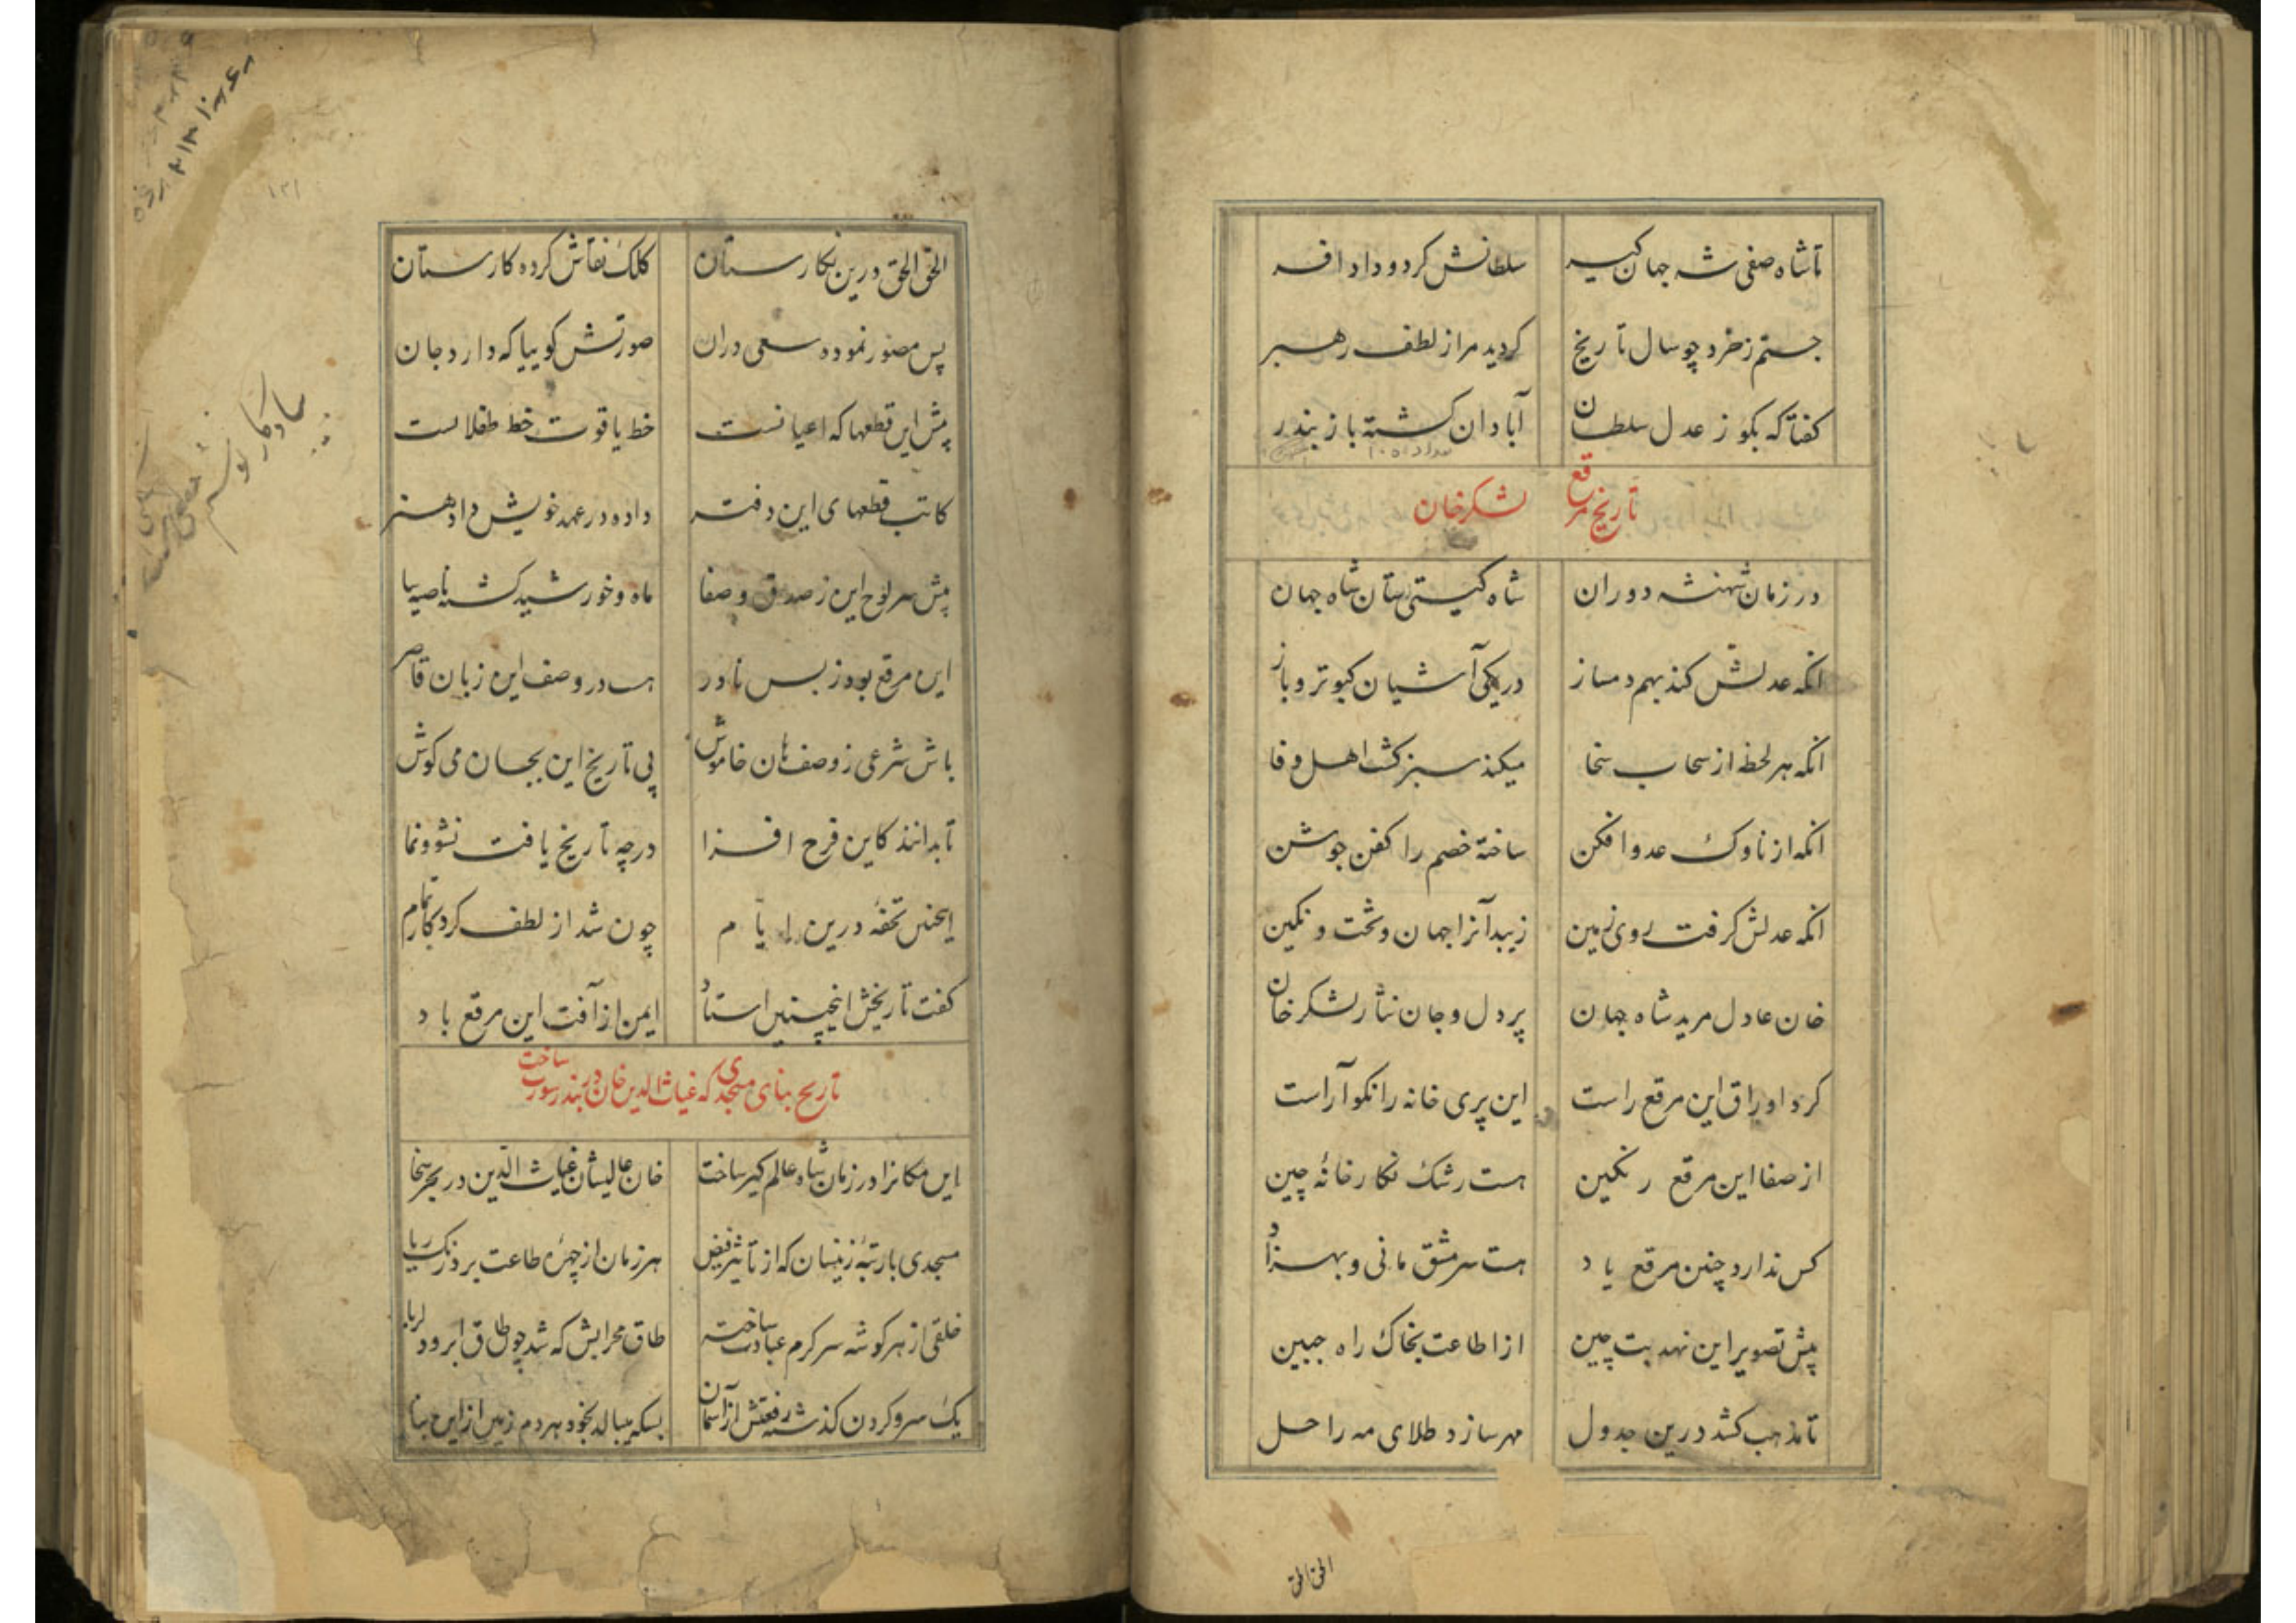 تا شاه صفی شه جهان کیر سلطانش کرد و داد افسر
جستم ز خرد چو سال تاریخ کردید مرا ز لطف رهبر
کفتا که بکو ز عدل سلطان آبادان کشته باز بندر
تاریخ مرقع لشکرخان
در زمان شهنشه دوران شاه کیتی ستان شاه جهان
انکه عدلش کند بهم دمساز در یکی آشیان کبوتر و باز
انکه هر لحظه از سحاب سخا میکند سبز کشت اهل وفا
انکه از ناوک عدو افکن ساخته خصم را کفن جوشن
انکه عدلش کرفت روی زمین زیبد آنرا جهان و تخت و نکین
خان عادل مرید شاه جهان پر دل و جان نثار لشکرخان
کرد اوراق این مرقع راست این پری خانه را نکو آراست
از صفا این مرقع رنکین هست رشک نکارخانهٔ چین
کس ندارد چنین مرقع یاد هست سرمشق مانی و بهزاد
پیش تصویر این نهد بت چین از اطاعت بخاک راه جبین
تا مذهب کشد درین جدول مهر سازد طلای مه را حل
الحق الحق
الحق الحق درین نکارستان کلک نقاش کرده کارستان
پس مصور نموده سعی دران صورتش کوییا که دارد جان
پیش این قطعها که اعیانست خط یاقوت خط طفلانست
کاتب قطعهای این دفتر داده در عهد خویش داد هنر
پیش سرلوح این ز صدق و صفا ماه و خورشید کشته ناصیه سا
این مرقع بود ز بس نادر هست در وصف این زبان قاصر
باش شرعی ز وصفهان خاموش پی تاریخ این بجان می کوش
تا بدانند کاین فرح افزا در چه تاریخ یافت نشو و نما
اینچنین تحفهٔ درین ایام چون شد از لطف کردکار تمام
کفت تاریخش اینچنین استاد ایمن از آفت این مرقع باد
تاریخ بنای مسجدی که غیاث الدین خان در بندر سورت ساخت
این مکانرا در زمان شاه عالم کیر ساخت خان عالیشان غیاث الدین در بحر سخا
مسجدی با رتبهٔ زینسان که از تاثیر فیض هر زمان از چهرهٔ طاعت برد زنک ریا
خلقی از هر کوشه سرکرم عبادت ساخته طاق محرابش که شد چو طاق ابرو دلربا
یک سر و کردن کذشته رفعتش از آسمان بسکه میبالد بخود هردم زمین از این بنا